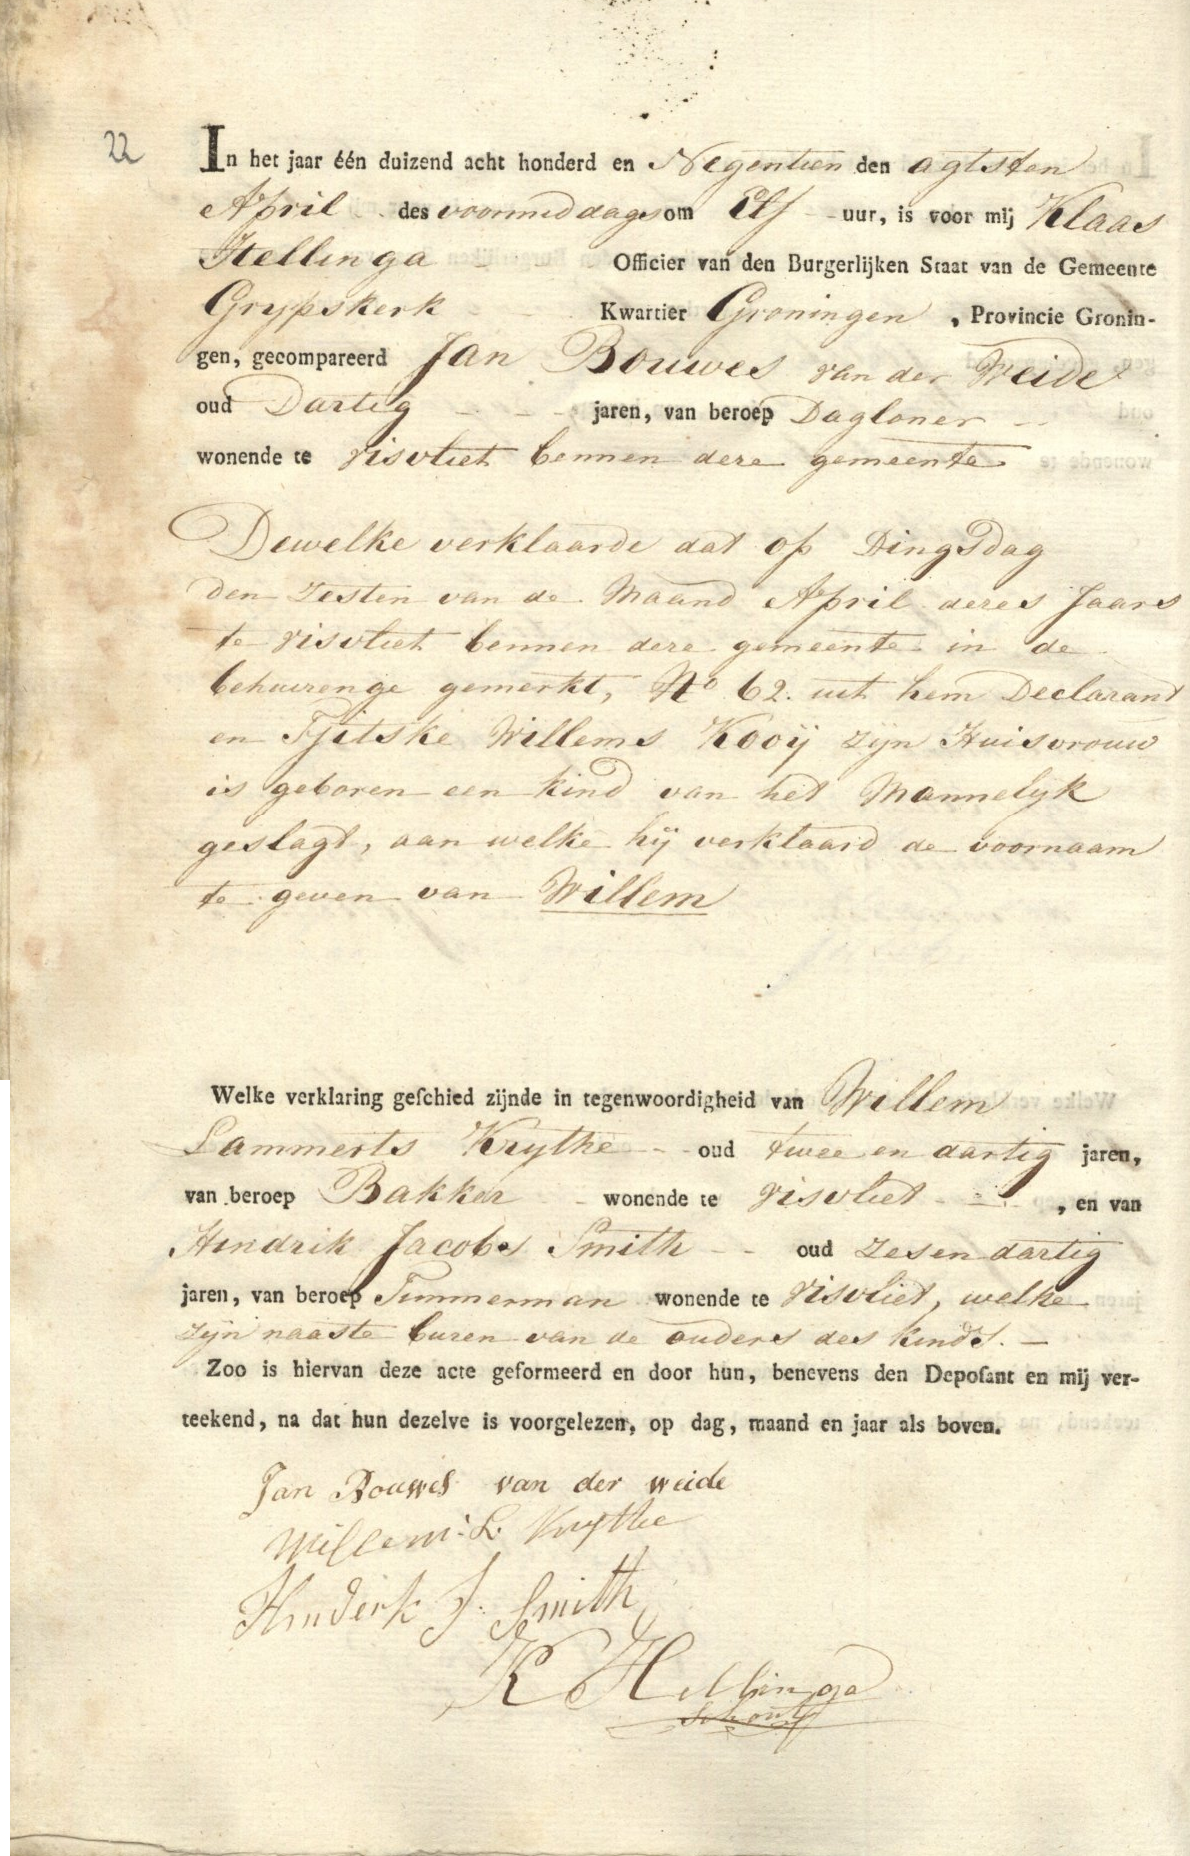 22
In het jaar één duizend acht honderd en Negentien den agtsten
April des voormiddags om Elf uur, is voor mij Klaas
Hellinga Officier van den Burgerlijken Staat van de Gemeente
Grypskerk Kwartier Groningen, Provincie Gronin-
gen, gecompareerd Jan Bouwes van der Weide
oud Dartig jaren, van beroep Dagloner
wonende te Visvliet bennen dere gemeente
Dewelke verklaarde dat op Dingsdag
den zesten van de Maand April deres Jaars
te Visvliet bennen dere gemeente in de
behuirenge gemerkt, No 62. uit hem Declarant
en Tjitske Willems Kooij zyn Huisvrouw
is geboren een kind van het Mannelyk
geslagt, aan welke hij verklaard de voornaam
te geven van Willem
Welke verklaring geſchied zijnde in tegenwoordigheid van Willem
Lammerts Kruythe oud twee en dartig jaren,
van beroep Bakker wonende te Visvliet, en van
Hendrik Jacobs Smith oud zesendartig
jaren, van beroep Timmerman wonende te Visvliet, welke
zyn naaste buren van de ouders des kinds. —
Zoo is hiervan deze acte geformeerd en door hun, benevens den Depoſant en mij ver-
teekend, na dat hun dezelve is voorgelezen, op dag, maand en jaar als boven.
Jan Bouwes van der weide
Willem: L. Kruythe
Hinderk J. Smith
K Hellinga
Schout